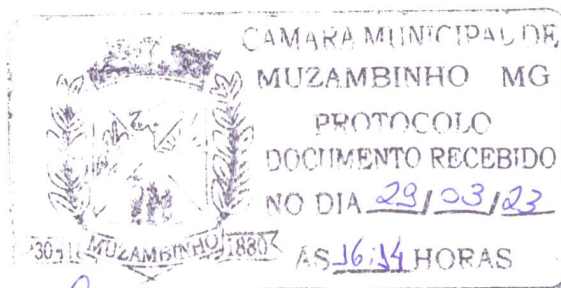 CAMARA MUNICIPAL DE
MUZAMBINHO MG
PROTOCOLO
DOCUMENTO RECEBIDO
NO DIA 29/03/23
AS 16:14 HORAS
MUZAMBINHO 1880